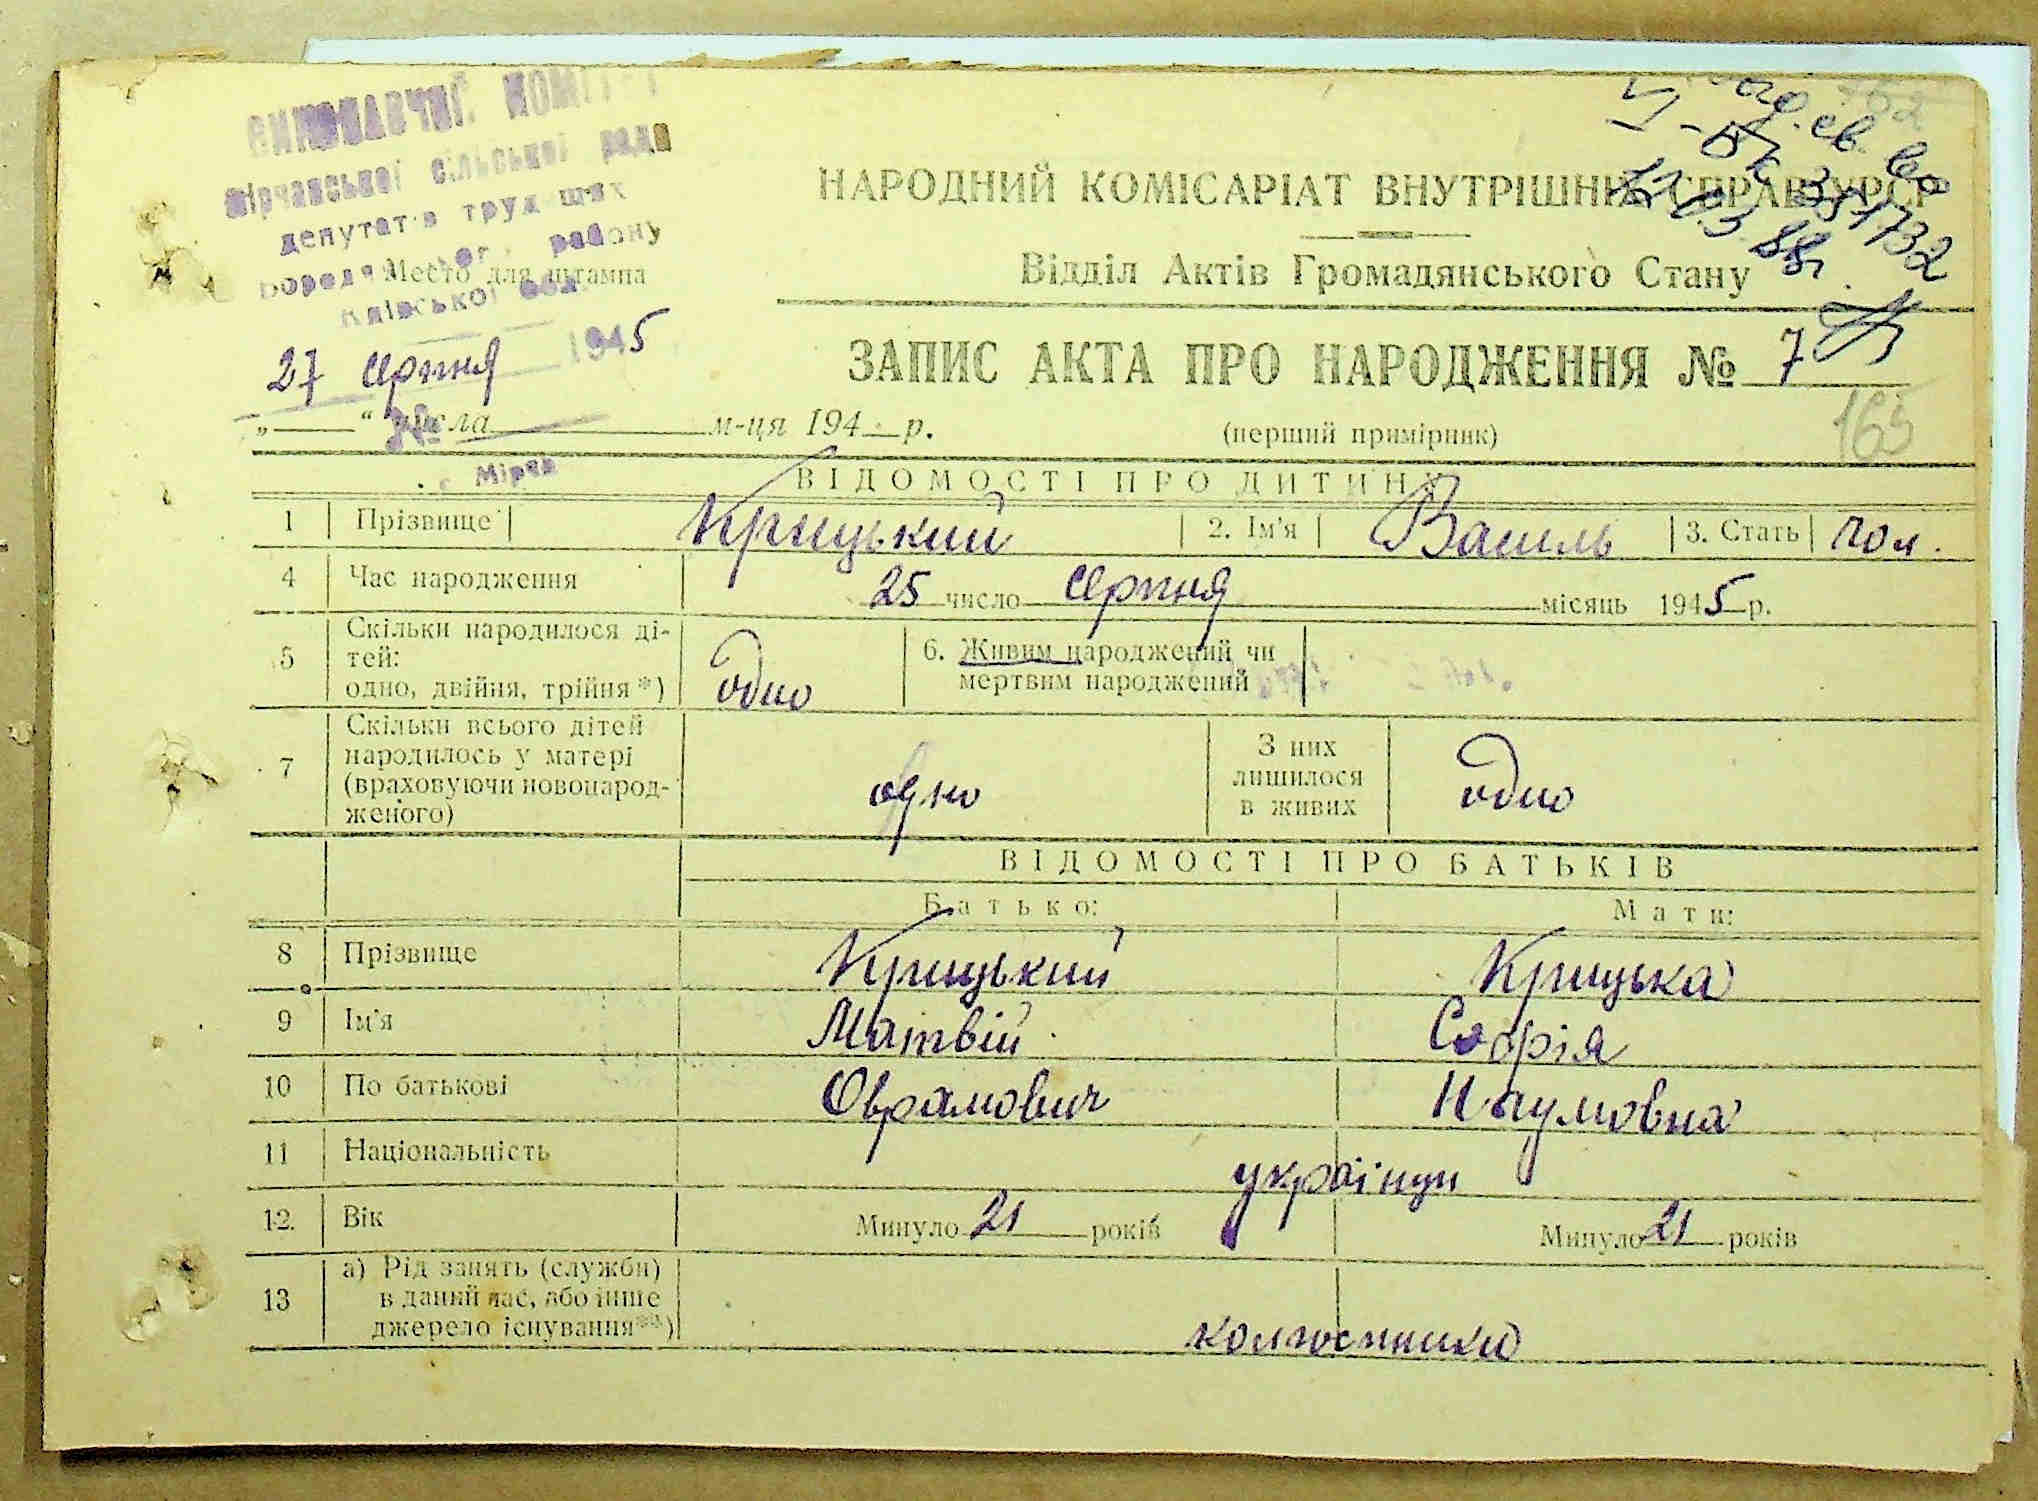 ВИКОНАВЧИЙ КОМІТЕТ
Мірчанської сільської ради
депутатів трудящих
Бородянського району
Место для штампа
Київської обл.
27 серпня 1945
„ “ числа м-ця 194 р.
№
с. Мірча
св.
-БК 351732
12.03.88г.
НАРОДНИЙ КОМІСАРІАТ ВНУТРІШНІХ СПРАВ УРСР
Відділ Актів Громадянського Стану
ЗАПИС АКТА ПРО НАРОДЖЕННЯ № 7
165
(перший примірник)
ВІДОМОСТІ ПРО ДИТИНУ
1 Прізвище Крицький 2. Ім'я Василь 3. Стать чол.
4 Час народження 25 число серпня місяць 1945 р.
5 Скільки народилося ді-
тей:
одно, двійня, трійня *) одно
6. Живим народжений чи
мертвим народжений
7 Скільки всього дітей
народилось у матері
(враховуючи новонарод-
женого) одно
З них
лишилося
в живих одно
ВІДОМОСТІ ПРО БАТЬКІВ
Батько: Мати:
8 Прізвище Крицький Крицька
9 Ім'я Матвій Софія
10 По батькові Оврамович Наумовна
11 Національність українци
12. Вік Минуло 21 років Минуло 21 років
13 а) Рід занять (служби)
в даний час, або інше
джерело існування**) колгоспники